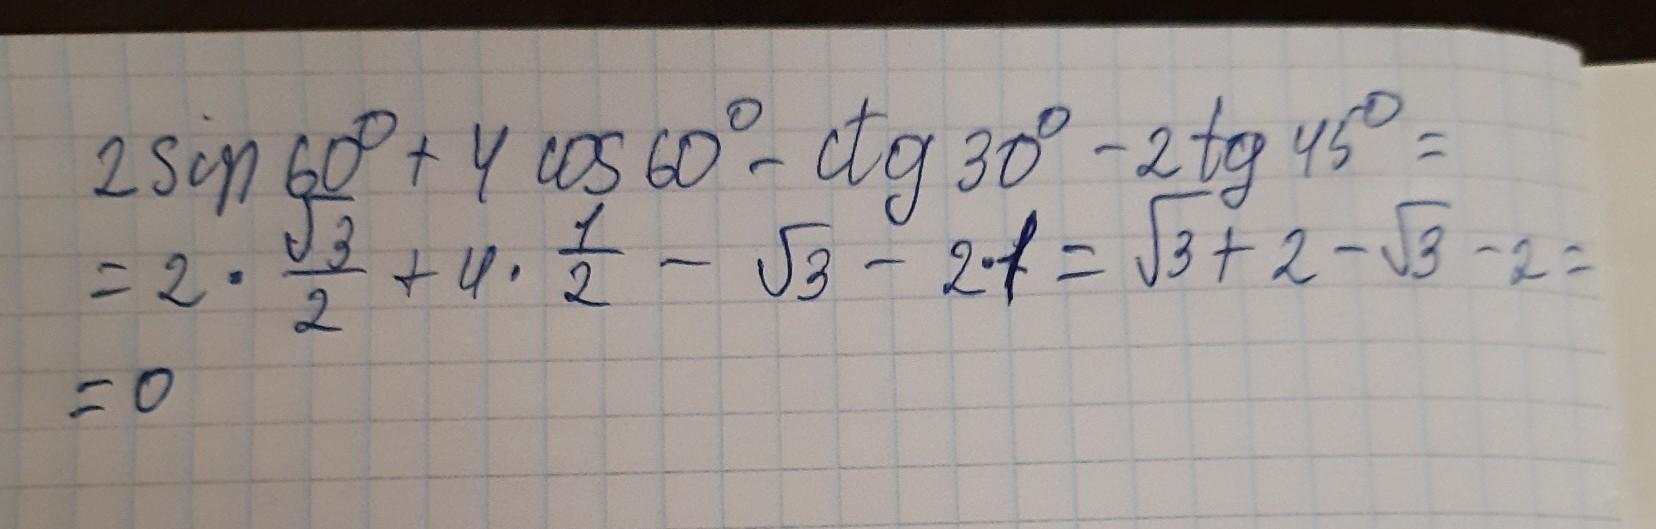 2 sin 60° + 4 cos 60° - ctg 30° - 2 tg 45° =
= 2 · √3/2 + 4 · 1/2 - √3 - 2·1 = √3 + 2 - √3 - 2 =
= 0